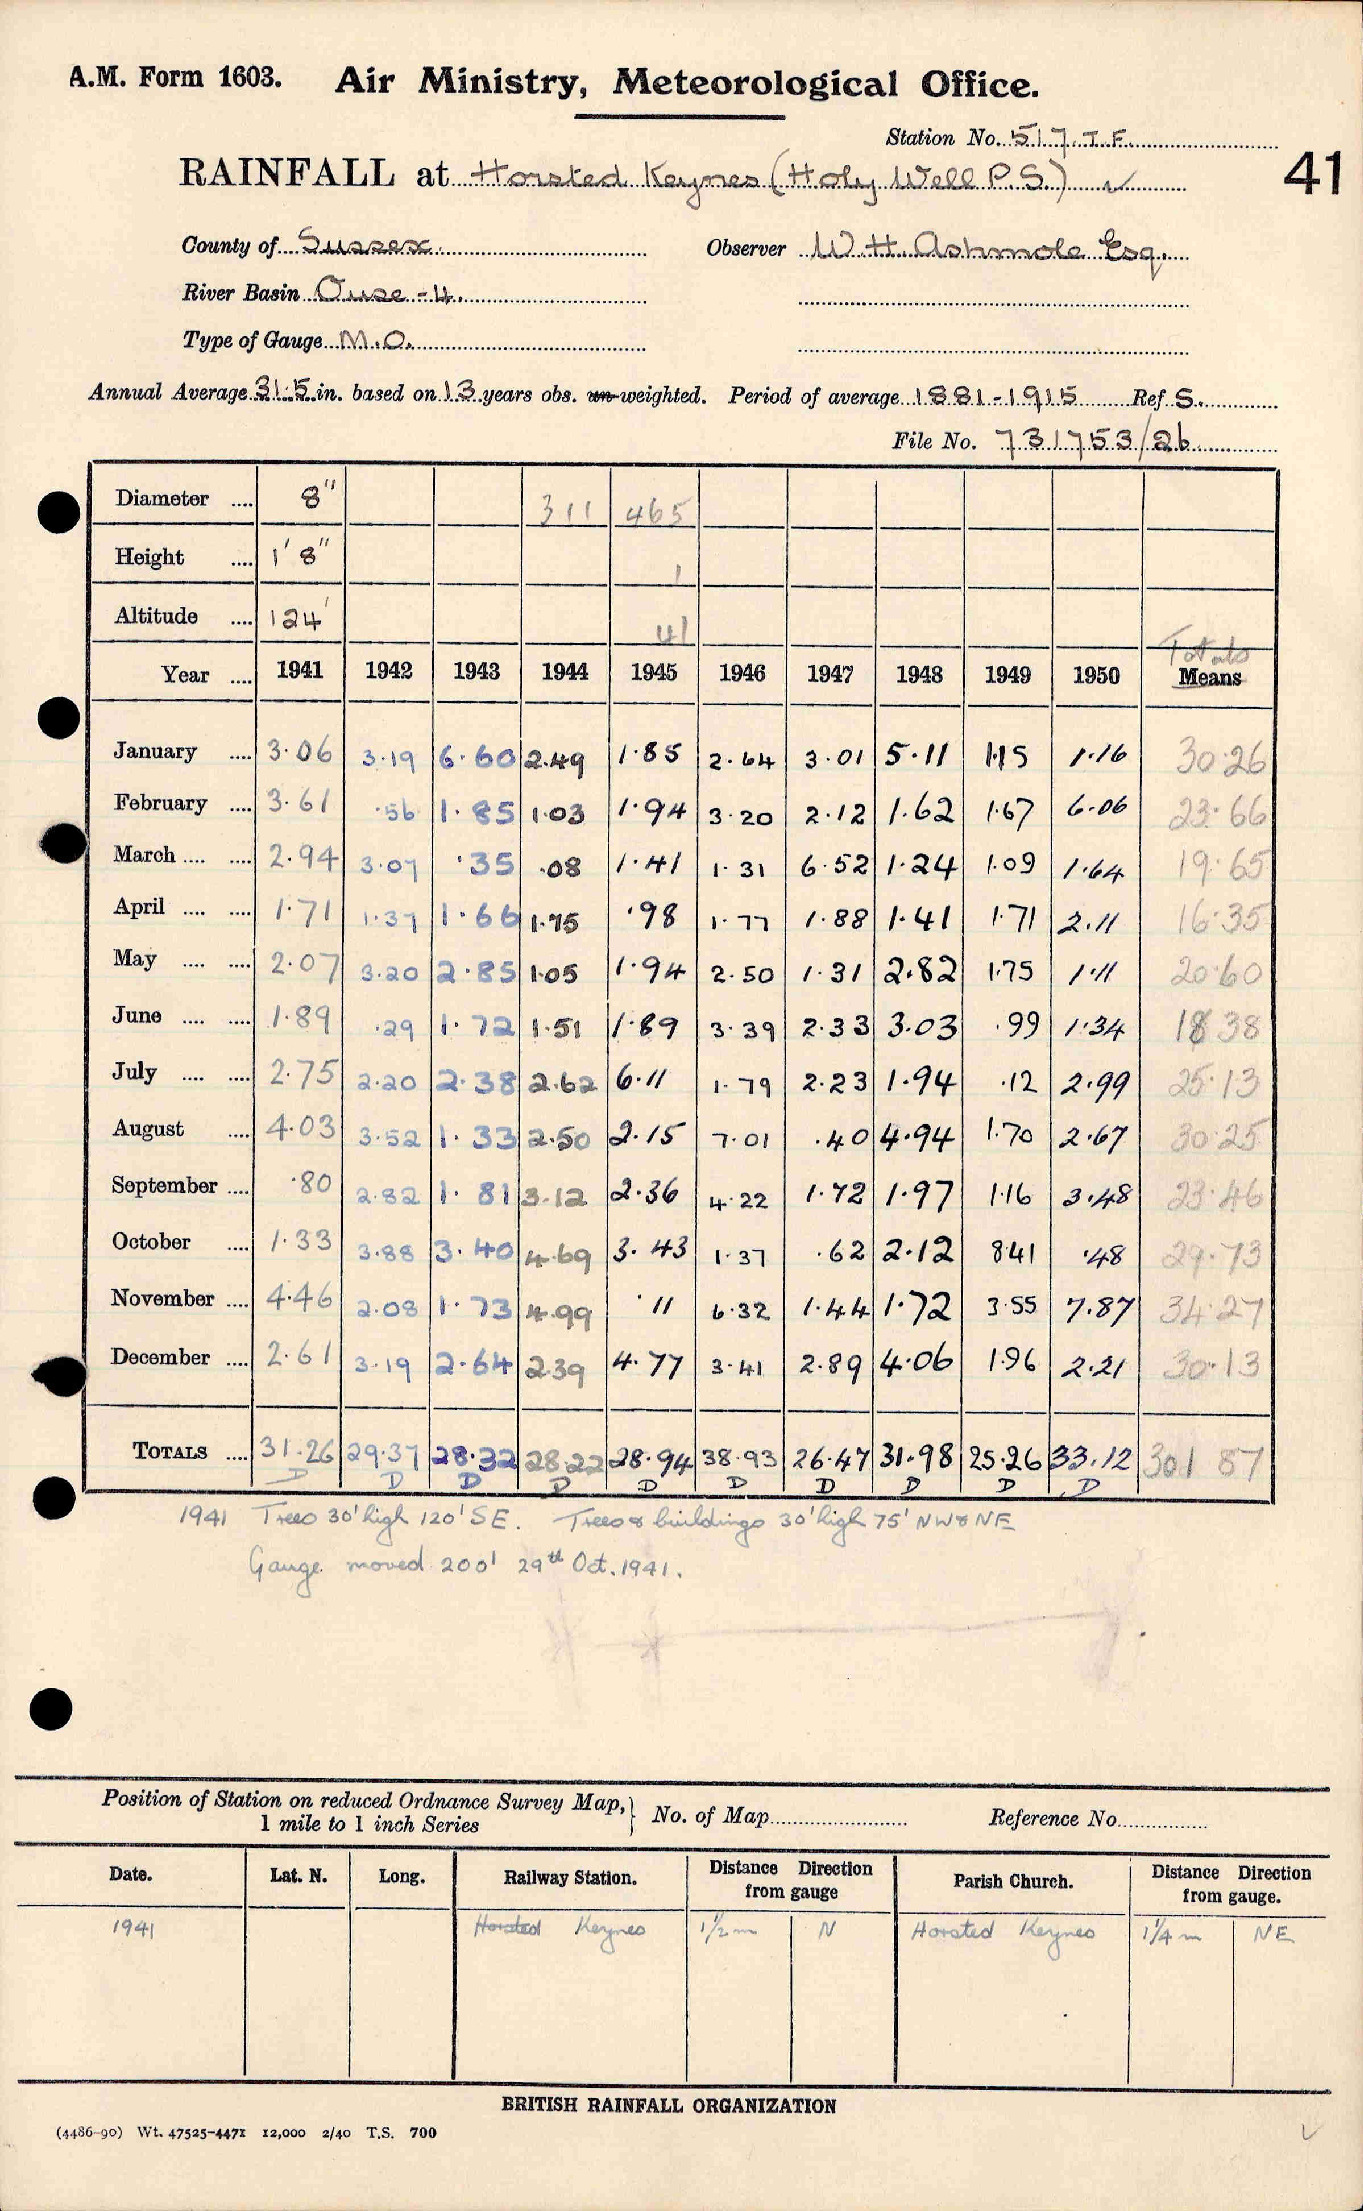 A.M. Form 1603. Air Ministry, Meteorological Office.
Station No. 517.T.F.
41
RAINFALL at Horsted Keynes (Holy Well P.S.) ✓
County of Sussex. Observer W.H. Ashmole Esq.
River Basin Ouse - 4.
Type of Gauge M.O.
Annual Average 31.5 in. based on 13 years obs. un-weighted. Period of average 1881-1915 Ref S.
File No. 731753/26
Diameter .... 8" 311 465
Height .... 1' 8" 1
Altitude .... 124' 41
Totals
Year .... 1941 1942 1943 1944 1945 1946 1947 1948 1949 1950 Means
January .... 3.06 3.19 6.60 2.49 1.85 2.64 3.01 5.11 1.15 1.16 30.26
February .... 3.61 .56 1.85 1.03 1.94 3.20 2.12 1.62 1.67 6.06 23.66
March .... .... 2.94 3.07 .35 .08 1.41 1.31 6.52 1.24 1.09 1.64 19.65
April .... .... 1.71 1.37 1.66 1.75 .98 1.77 1.88 1.41 1.71 2.11 16.35
May .... .... 2.07 3.20 2.85 1.05 1.94 2.50 1.31 2.82 1.75 1.11 20.60
June .... .... 1.89 .29 1.72 1.51 1.89 3.39 2.33 3.03 .99 1.34 18 38
July .... .... 2.75 2.20 2.38 2.62 6.11 1.79 2.23 1.94 .12 2.99 25.13
August .... 4.03 3.52 1.33 2.50 2.15 7.01 .40 4.94 1.70 2.67 30.25
September .... .80 2.82 1.81 3.12 2.36 4.22 1.72 1.97 1.16 3.48 23.46
October .... 1.33 3.88 3.40 4.69 3.43 1.37 .62 2.12 8.41 .48 29.73
November .... 4.46 2.08 1.73 4.99 .11 6.32 1.44 1.72 3.55 7.87 34.27
December .... 2.61 3.19 2.64 2.39 4.77 3.41 2.89 4.06 1.96 2.21 30.13
TOTALS .... 31.26 29.37 28.32 28.22 28.94 38.93 26.47 31.98 25.26 33.12 301 87
D D D D D D D D D D
1941 Trees 30' high 120' SE. Trees & buildings 30' high 75' NW & NE
Gauge moved 200' 29th Oct. 1941.
Position of Station on reduced Ordnance Survey Map,} No. of Map Reference No.
1 mile to 1 inch Series
Date. Lat. N. Long. Railway Station. Distance Direction from gauge Parish Church. Distance Direction from gauge.
1941 Horsted Keynes 1½ m N Horsted Keynes 1¼ m NE
BRITISH RAINFALL ORGANIZATION
(4486-90) Wt. 47525-4471 12,000 2/40 T.S. 700
✓